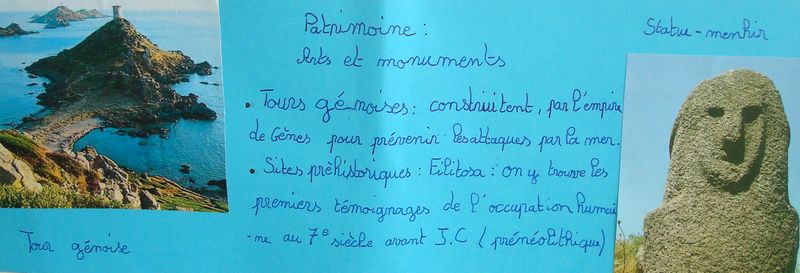 Patrimoine :
Arts et monuments
Statue-menhir
• Tours génoises : construitent, par l'empire
de Gênes pour prévenir les attaques par la mer.
• Sites prèhistoriques : Filitosa : on y trouve les
premiers témoignages de l'occupation humai
-ne au 7e siècle avant J.C (prénéolithique)
Tour génoise